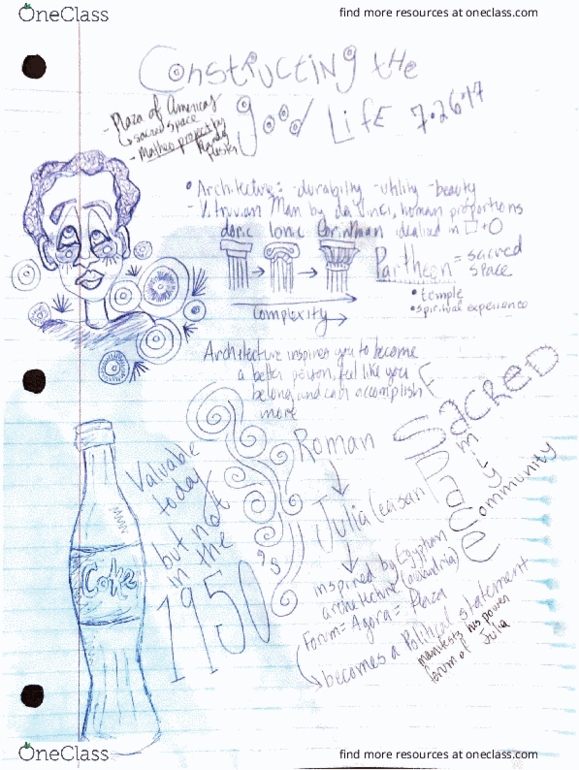 OneClass
find more resources at oneclass.com
Constructing the
good Life 7.26.17
- Plaza of Americas
↳ sacred space
- Matheo project by
• Architecture: -durability -utility -beauty
- Vitruvian Man by da Vinci, human proportions
doric Ionic Corinthian idealized in □+O
Partheon = sacred
space
• temple
• spiritual experience
Complexity →
Architecture inspires you to become
a better person, feel like you
belong and can accomplish
more
Sacred
Space
Family
Community
Valuable
today
but not
in the
1950's
Coke
Roman
Julia
inspired by Egyptian
architecture (alexandria)
Forum = Agora = Plaza
↳ becomes a Political statement
manifests his power
forum of Julia
OneClass
find more resources at oneclass.com